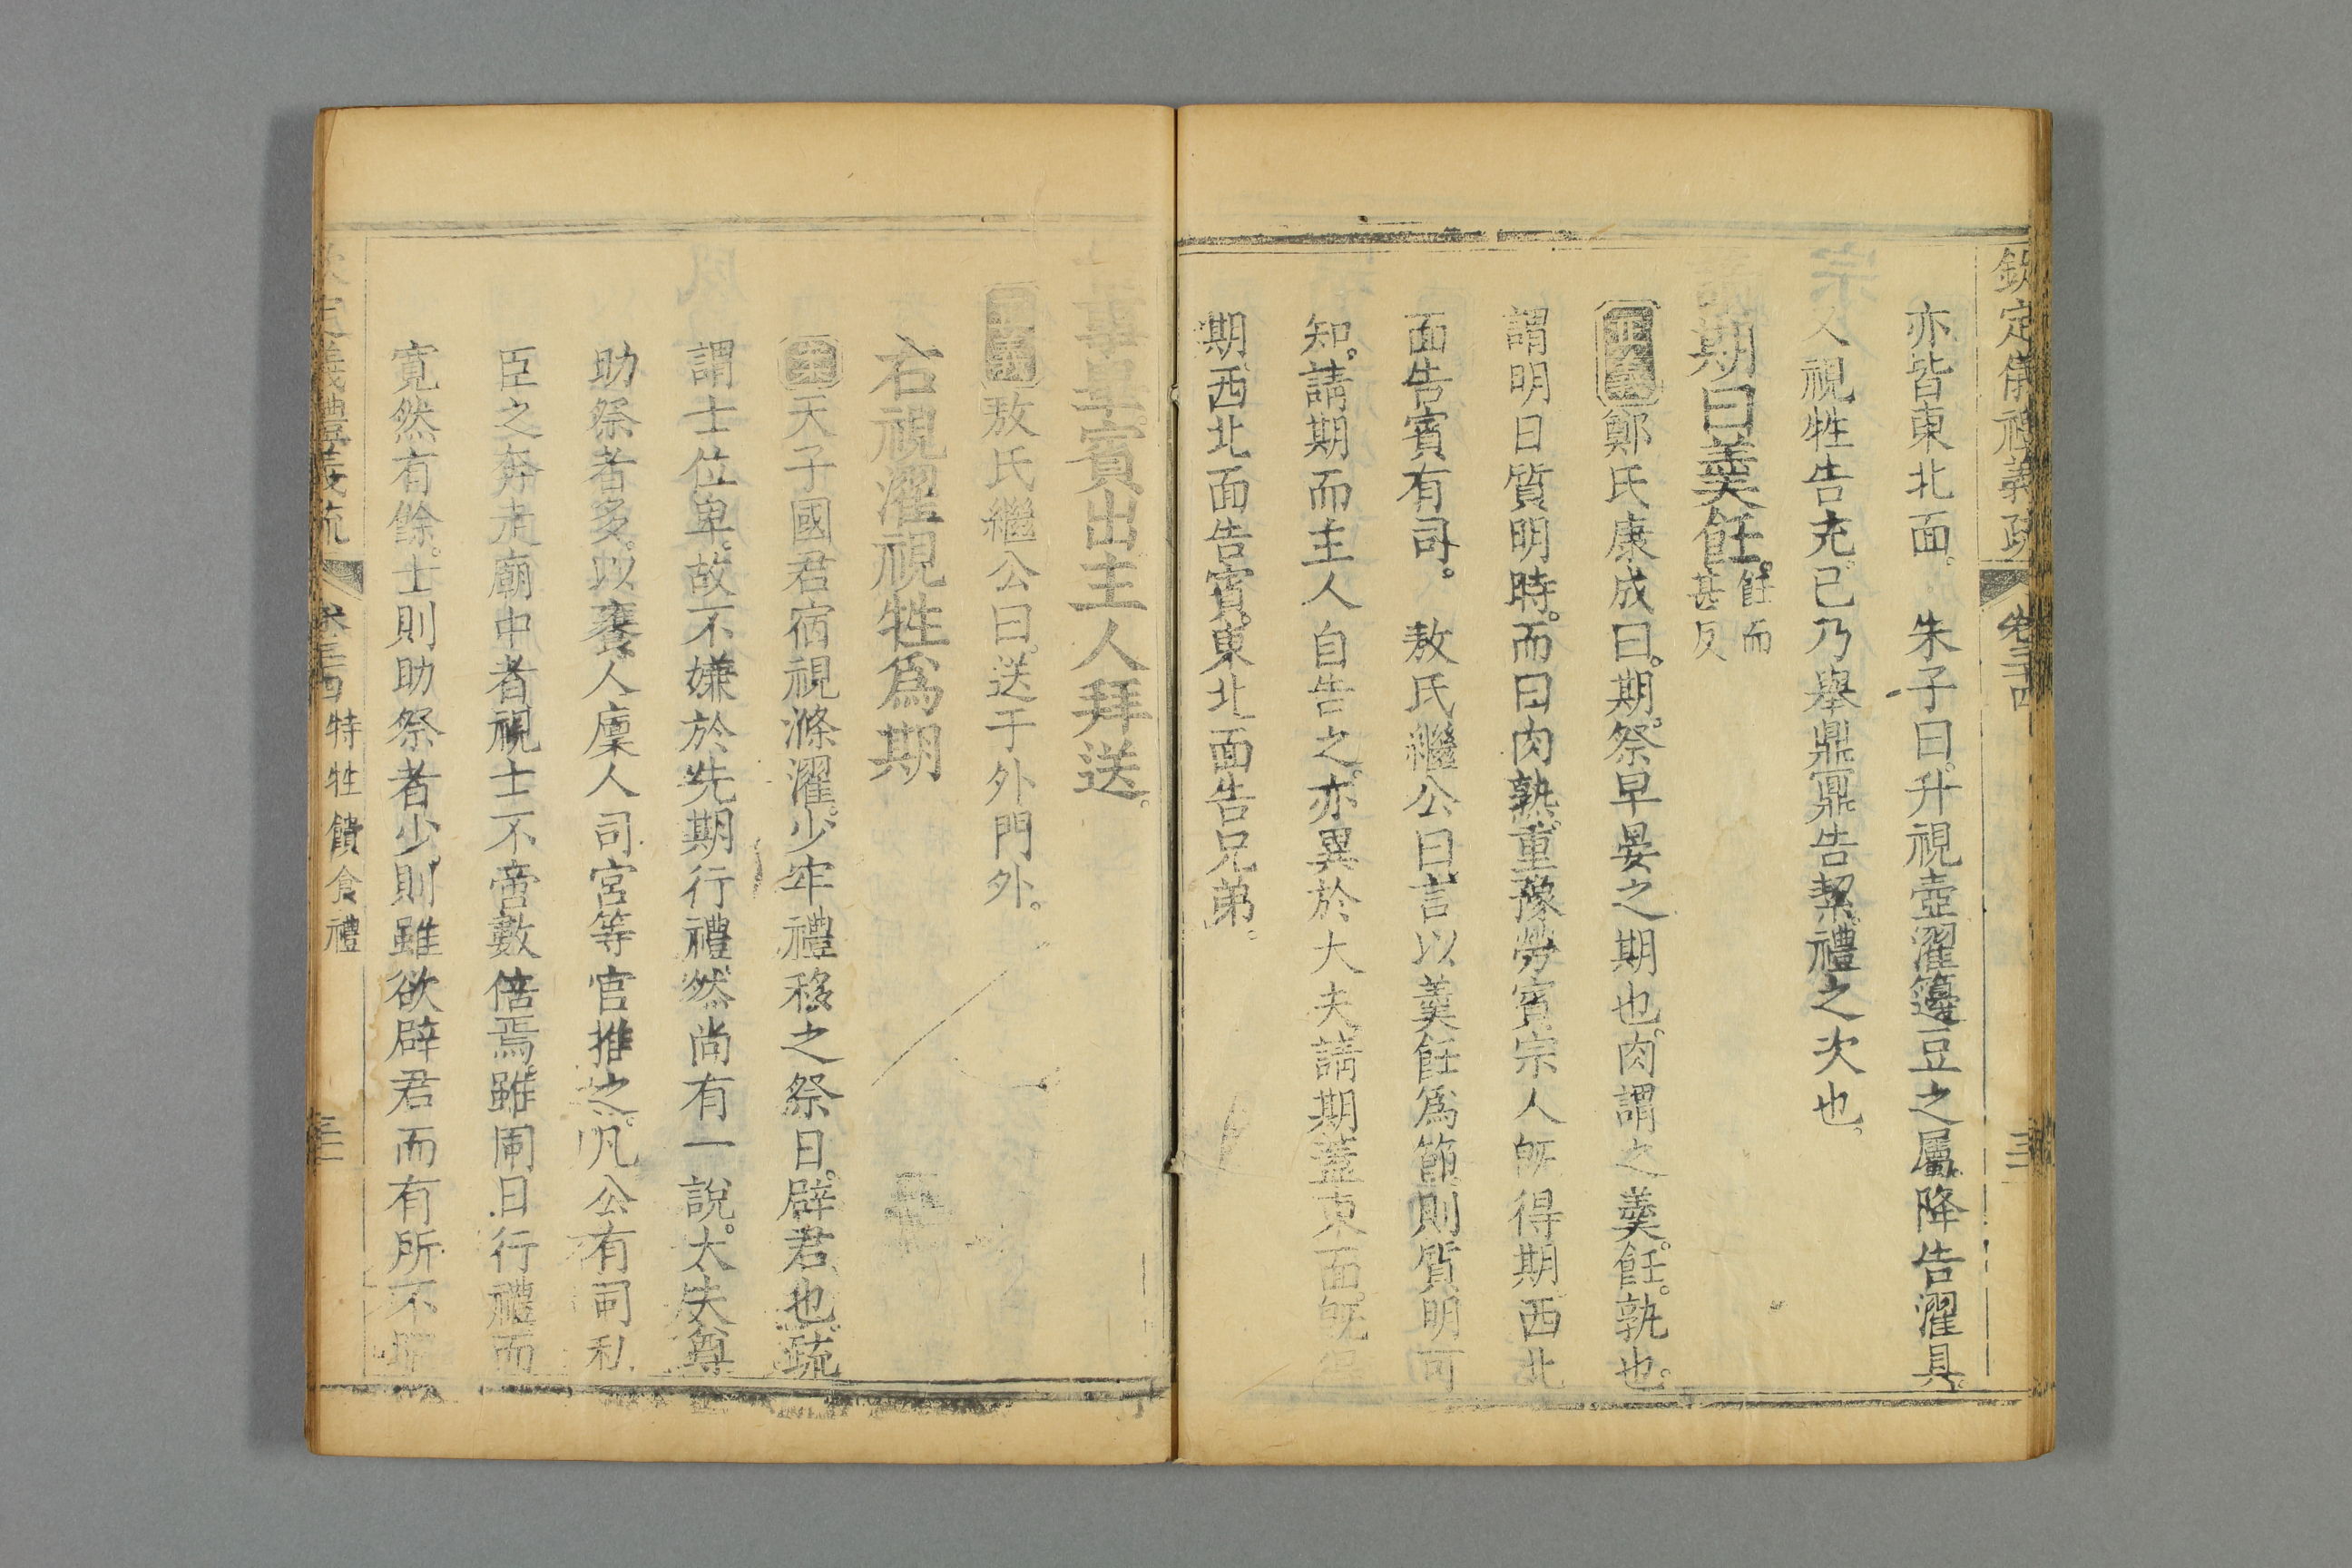 欽定儀禮義疏 卷三十四
亦皆東北面。 朱子曰。升視壺濯籩豆之屬。降告濯具。
又視牲告充。已乃舉鼎鼏告絜。禮之次也。
期曰羹飪。飪而甚反
正義鄭氏康成曰。期。祭早晏之期也。肉謂之羹。飪。孰也。
謂明日質明時。而曰肉孰。重豫勞賓。宗人旣得期。西北
面告賓有司。 敖氏繼公曰。言以羹飪爲節。則質明可
知。請期而主人自告之。亦異於大夫請期。蓋東面。旣得
期。西北面告賓。東北面告兄弟。
告事畢。賓出。主人拜送。
正義敖氏繼公曰。送于外門外。
右視濯視牲爲期
案天子國君宿視滌濯。少牢禮移之祭日。辟君也。疏
謂士位卑。故不嫌於先期行禮。然尚有一說。大夫尊
助祭者多。以饔人廩人司宮等官推之。凡公有司私
臣之奔走廟中者。視士不啻數倍焉。雖同日行禮而
寛然有餘。士則助祭者少。則雖欲辟君而有所不
欽定儀禮義疏 卷三十四 特牲饋食禮